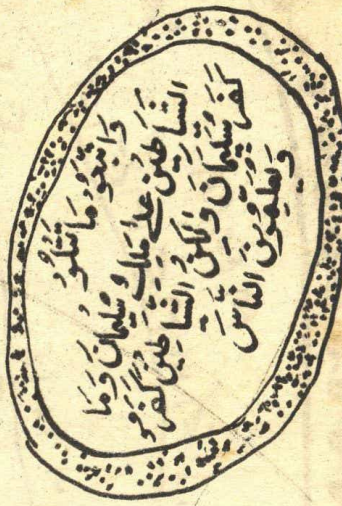 وَاتبعُو مَا تَتْلُو
الشَّيَاطِينَ عَلَى مُلْكِ سُلَيْمَانَ وَمَا
كَفَرَ سُلَيْمَانَ وَلَكِنَّ الشَّيَاطِينَ كَفَرُو
وَيُعَلِّمُونَ النَّاسَ